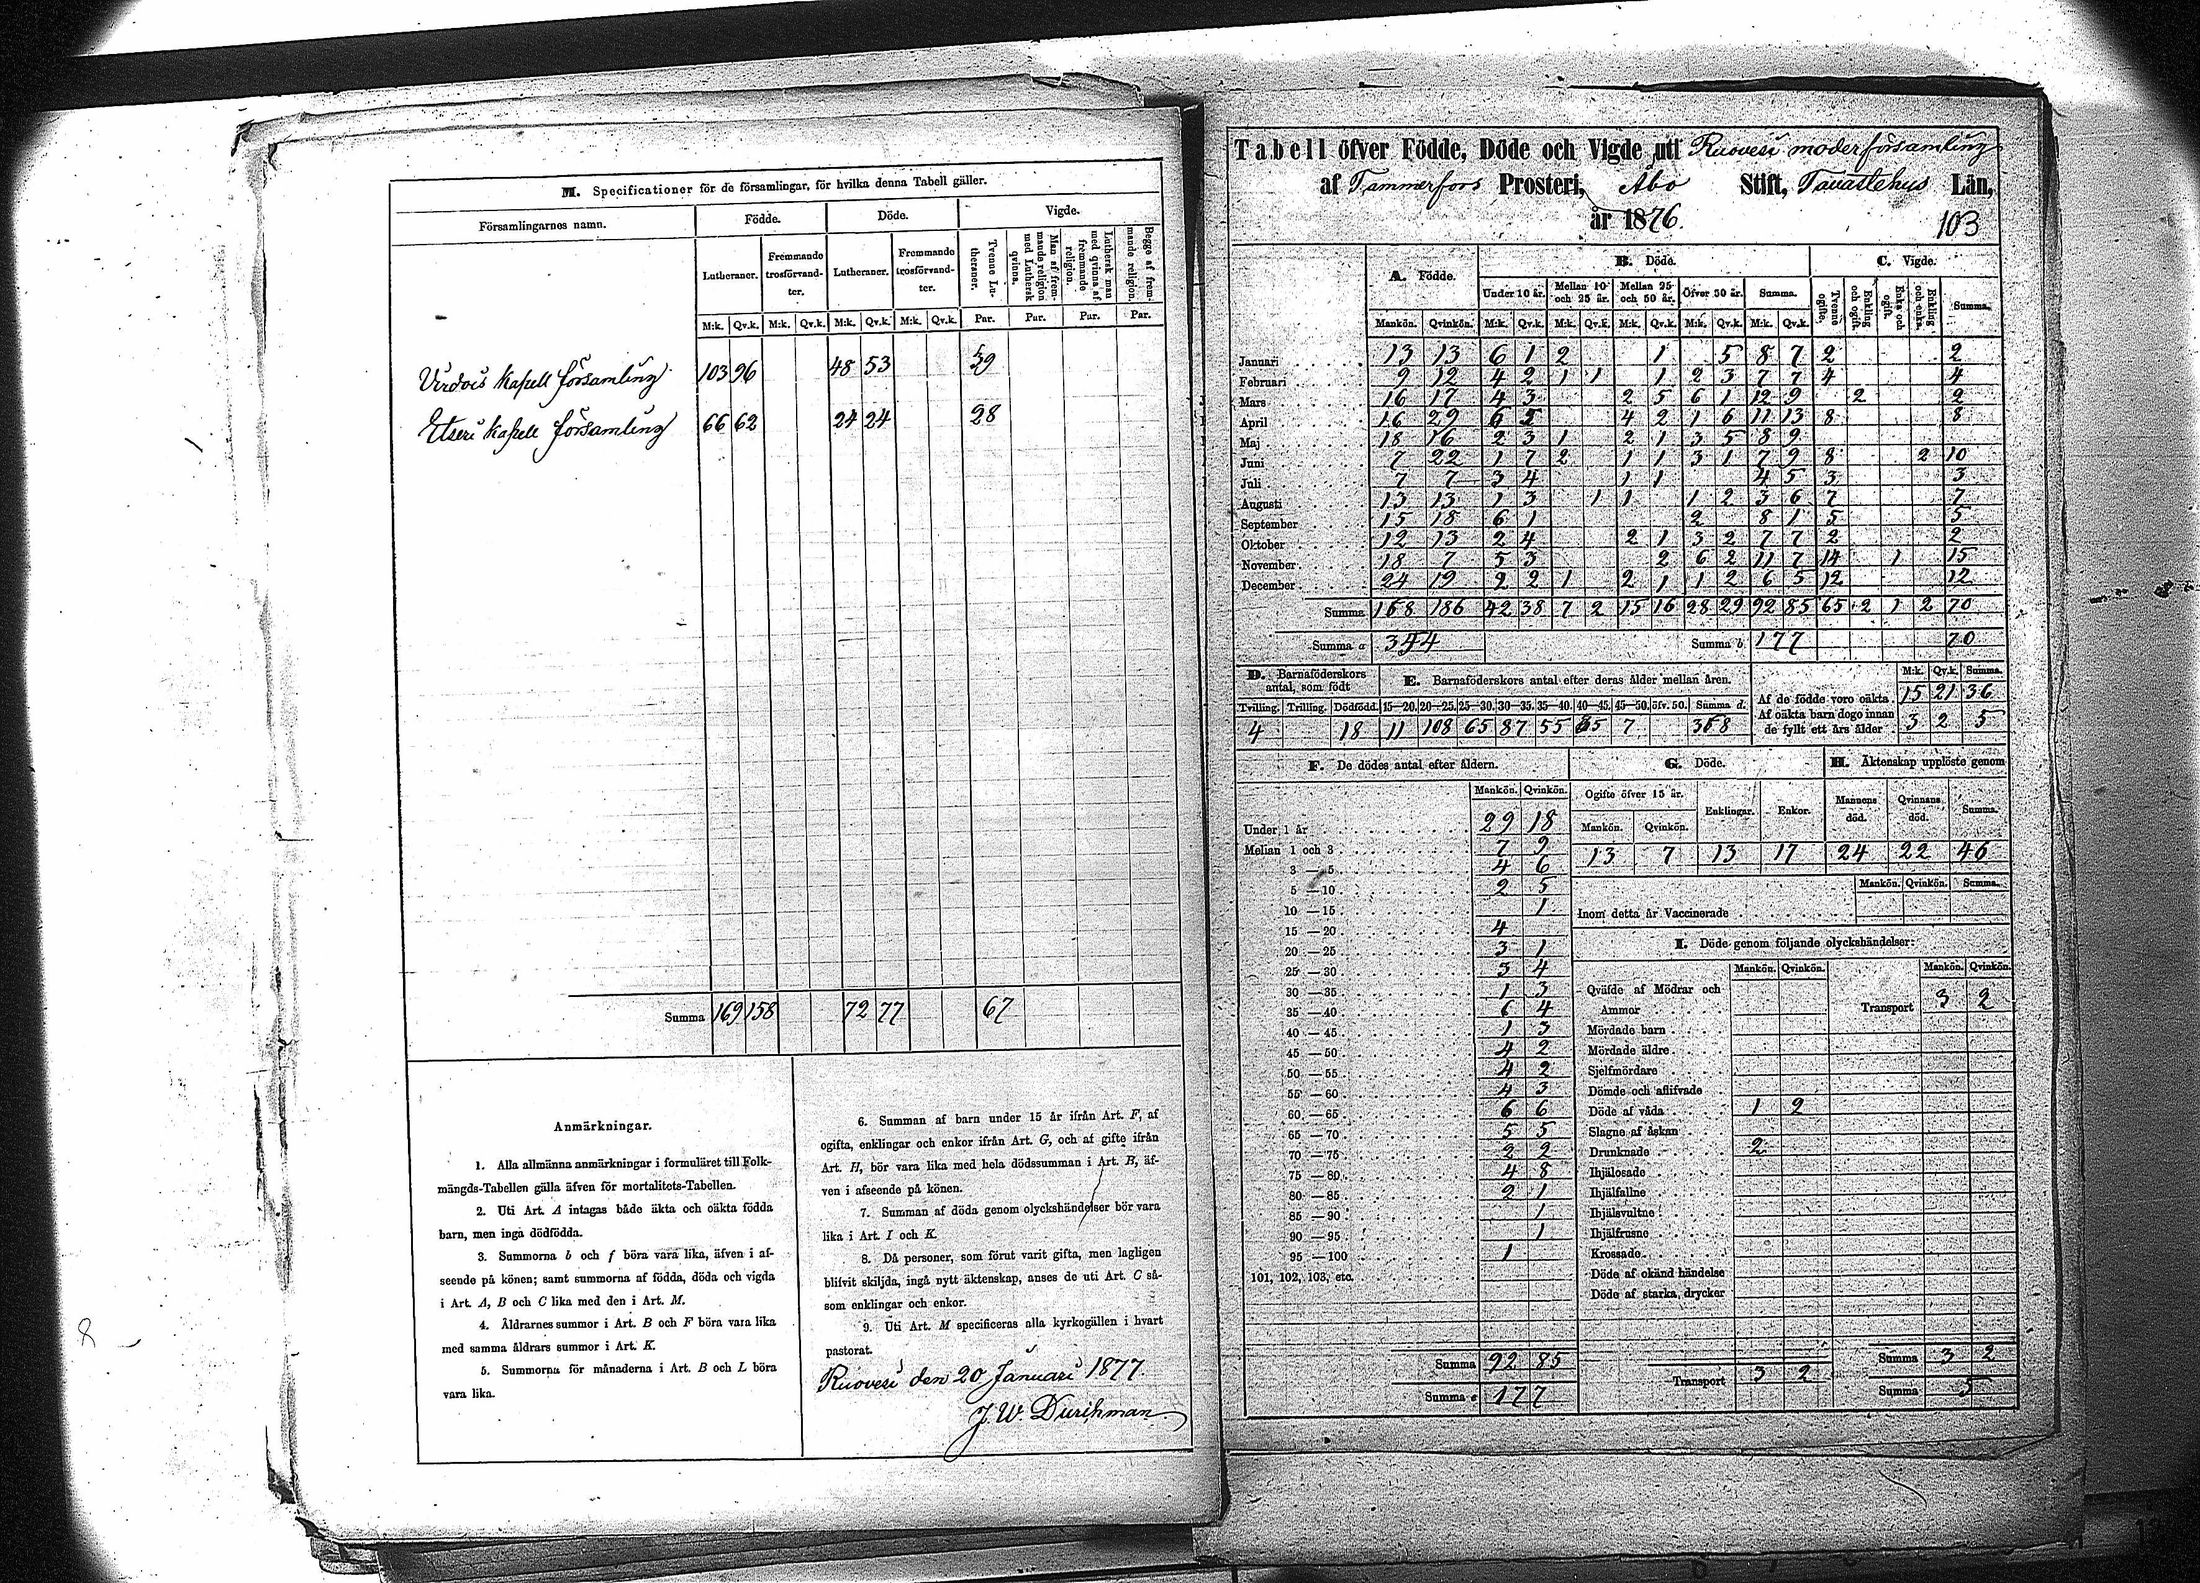 M. Specificationer för de församlingar, för hvilka denna Tabell gäller.
Församlingarnes namn. Födde. Döde. Vigde.
Lutheraner. Fremmande trosförvandter. Lutheraner. Fremmande trosförvandter. Tvenne Lutheraner. Man af fremmande religion med Luthersk qvinna. Luthersk man med qvinna af fremmande religion. Begge af fremmande religion.
M:k. Qv.k. M:k. Qv.k. M:k. Qv.k. M:k. Qv.k. Par. Par. Par. Par.
Virdois Kapell församling 103 96 48 53 39
Etseri Kapell församling 66 62 24 24 28
Summa 169 158 72 77 67
Anmärkningar.
1. Alla allmänna anmärkningar i formuläret till Folk-
mängds-Tabellen gälla äfven för mortalitets-Tabellen.
2. Uti Art. A intagas både äkta och oäkta födda
barn, men inga dödfödda.
3. Summorna b och f böra vara lika, äfven i af-
seende på könen; samt summorna af födda, döda och vigda
i Art. A, B och C lika med den i Art. M.
4. Åldrarnes summor i Art. B och F böra vara lika
med samma åldrars summor i Art. K.
5. Summorna för månaderna i Art. B och L böra
vara lika.
6. Summan af barn under 15 år ifrån Art. F, af
ogifta, enklingar och enkor ifrån Art. G, och af gifte ifrån
Art. H, bör vara lika med hela dödssumman i Art. B, äf-
ven i afseende på könen.
7. Summan af döda genom olyckshändelser bör vara
lika i Art. I och K.
8. Då personer, som förut varit gifta, men lagligen
blifvit skiljda, ingå nytt äktenskap, anses de uti Art. C så-
som enklingar och enkor.
9. Uti Art. M specificeras alla kyrkogällen i hvart
pastorat.
Ruovesi den 20 Januari 1877.
J. W. Durchman
Tabell öfver Födde, Döde och Vigde uti Ruovesi moderförsamling
af Tammerfors Prosteri, Åbo Stift, Tavastehus Län,
år 1876.
103
A. Födde. B. Döde. C. Vigde.
Under 10 år. Mellan 10 och 25 år. Mellan 25 och 50 år. Öfver 50 år. Summa. Tvenne ogifte. Enkling och ogift. Enka och ogift. Enkling och enka. Summa.
Mankön. Qvinkön. M:k. Qv.k. M:k. Qv.k. M:k. Qv.k. M:k. Qv.k. M:k. Qv.k.
Januari 13 13 6 1 2 1 5 8 7 2 2
Februari 9 12 4 2 1 1 1 2 3 7 7 4 4
Mars 16 17 4 3 2 5 6 1 12 9 2 2
April 16 29 6 5 4 2 1 6 11 13 8 8
Maj 18 16 2 3 1 2 1 3 5 8 9
Juni 7 22 1 7 2 1 1 3 1 7 9 8 2 10
Juli 7 7 3 4 1 1 4 5 3 3
Augusti 13 13 1 3 1 1 1 2 3 6 7 7
September 15 18 6 1 2 8 1 5 5
Oktober 12 13 2 4 2 1 3 2 7 7 2 2
November 18 7 5 3 2 6 2 11 7 14 1 15
December 24 19 2 2 1 2 1 1 2 6 5 12 12
Summa 168 186 42 38 7 2 15 16 28 29 92 85 65 2 1 2 70
Summa a 354 Summa b 177 70
D. Barnaföderskors antal, som födt
E. Barnaföderskors antal efter deras ålder mellan åren.
M:k. Qv.k. Summa.
Tvilling. Trilling. Dödfödd. 15—20. 20—25. 25—30. 30—35. 35—40. 40—45. 45—50. öfv. 50. Summa d.
4 18 11 108 65 87 55 35 7 368
Af de födde voro oäkta 15 21 36
Af oäkta barn dogo innan de fyllt ett års ålder 3 2 5
F. De dödes antal efter åldern.
Mankön. Qvinkön.
Under 1 år 29 18
Mellan 1 och 3 7 9
3—5 4 6
5—10 2 5
10—15 1
15—20 4
20—25 3 1
25—30 3 4
30—35 1 3
35—40 6 4
40—45 1 3
45—50 4 2
50—55 4 2
55—60 4 3
60—65 6 6
65—70 5 5
70—75 2 2
75—80 4 8
80—85 2 1
85—90 1
90—95 1
95—100 1
101, 102, 103, etc.
Summa 92 85
Summa 177
G. Döde.
Ogifte öfver 15 år. Enklingar. Enkor.
Mankön. Qvinkön.
13 7 13 17
H. Äktenskap upplöste genom
Mannens död. Qvinnans död. Summa.
24 22 46
Mankön. Qvinkön. Summa.
Inom detta år Vaccinerade
I. Döde genom följande olyckshändelser:
Mankön. Qvinkön. Mankön. Qvinkön.
Qväfde af Mödrar och Ammor
Transport 3 2
Mördade barn
Mördade äldre
Sjelfmördare
Dömde och aflifvade
Döde af våda 1 2
Slagne af åskan
Drunknade 2
Ihjälosade
Ihjälfallne
Ihjälsvultne
Ihjälfrusne
Krossade
Döde af okänd händelse
Döde af starka drycker
Transport 3 2
Summa 3 2
Summa 5